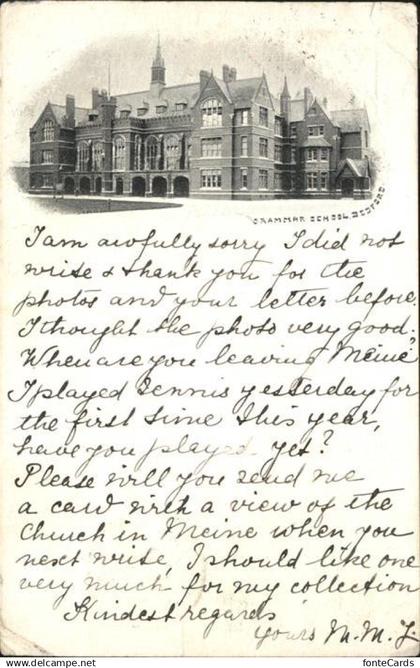 GRAMMAR SCHOOL, BEDFORD
I am awfully sorry I did not
write & thank you for the
photos and your letter before.
I thought the photo very good.
When are you leaving Meine?
I played tennis yesterday for
the first time this year,
have you played yet?
Please will you send me
a card with a view of the
church in Meine when you
next write, I should like one
very much for my collection
Kindest regards
yours M. M. L
© www.fonteCards.net